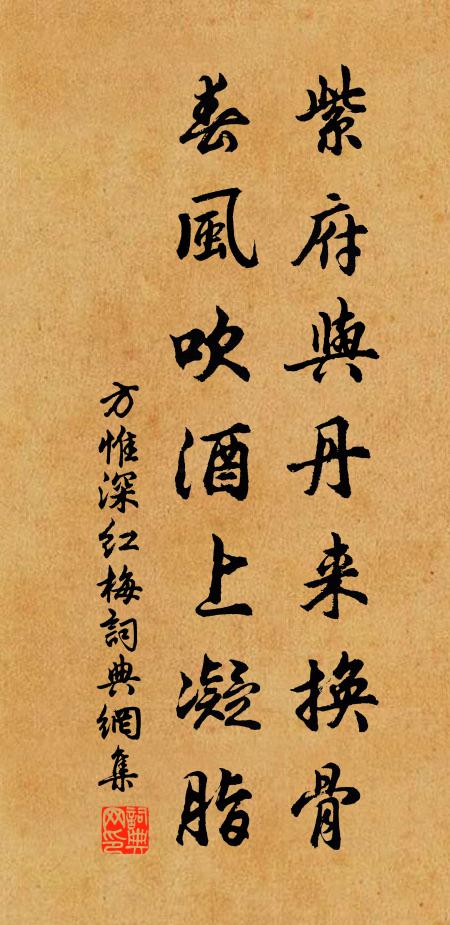 紫府與丹来换骨
春風吹酒上凝脂
方惟深红梅詞典網集
詞典网印